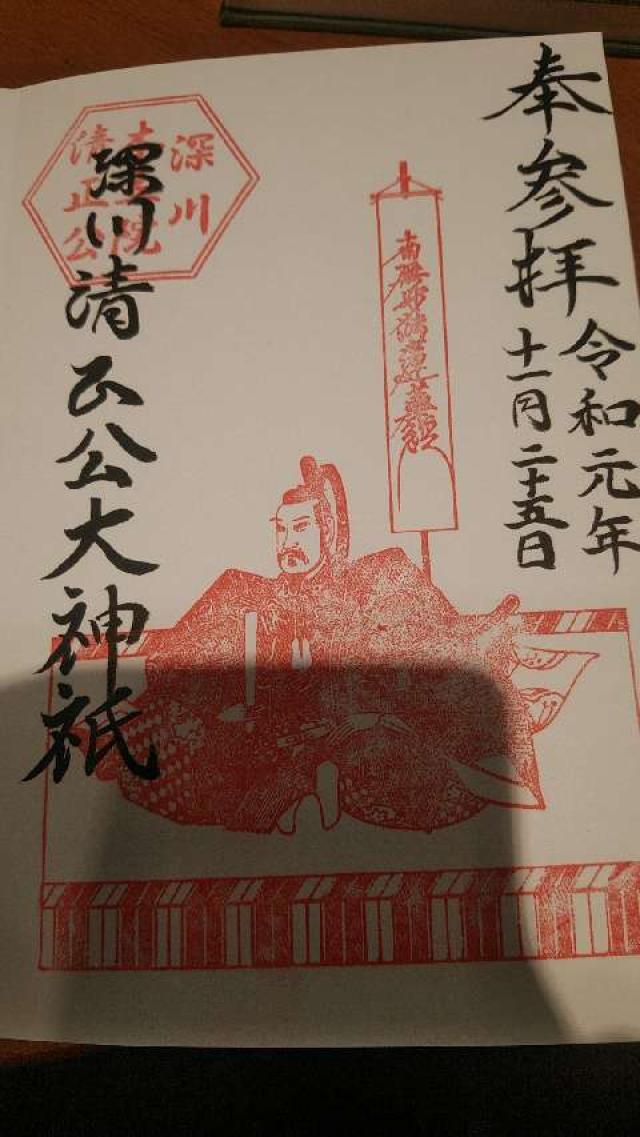 奉参拝
令和元年
十一月二十五日
南無妙法蓮華経
深川
清正公
深川清正公大神祇